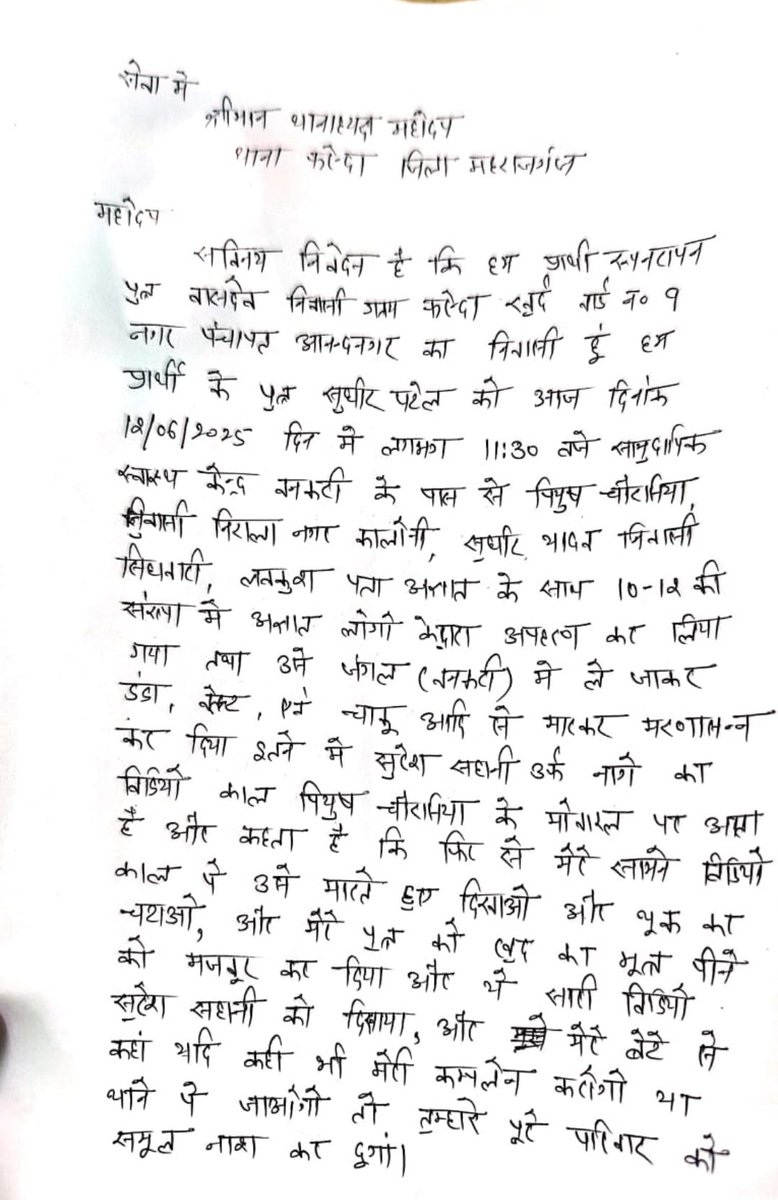 सेवा मे
श्रीमान थानाध्यक्ष महोदय
थाना फरेन्दा जिला महराजगंज
महोदय
सविनय निवेदन है कि हम प्रार्थी
पुत्र वासदेव निवासी ग्राम फरेन्दा खुर्द वार्ड न० 9
नगर पंचायत आनन्दनगर का निवासी हूं हम
प्रार्थी के पुत्र सुधीर पटेल को आज दिनांक
12/06/2025 दिन मे लगभग 11:30 बजे सामुदायिक
स्वास्थ केन्द्र बनकटी के पास से पियुष चौरासिया,
निवासी निराला नगर कालोनी, सुधीर यादव निवासी
सिधवारी, लवकुश पता अज्ञात के साथ 10-12 की
संख्या मे अज्ञात लोगो के द्वारा अपहरण कर लिया
गया तथा उसे जंगल (बनकटी) मे ले जाकर
डंडा, बेल्ट, एवं चाकू आदि से मारकर मरणासन्न
कर दिया इतने मे सुरेश सहानी उर्फ नागे का
विडियो काल पियुष चौरासिया के मोबाइल पर आता
है और कहता है कि फिर से मेरे सामने विडियो
काल पे उसे मारते हुए दिखाओ और थूक का
चटाओ, और मेरे पुत्र को खुद का मूत्र पीने
को मजबूर कर दिया और ये सारी विडियो
सुरेश सहानी को दिखाया, और मेरे बेटे से
कहां यदि कही भी मेरी कम्पलेन करोगो या
थाने पे जाओगो तो तुम्हारे पूरे परिवार को
समूल नाश कर दूगां।